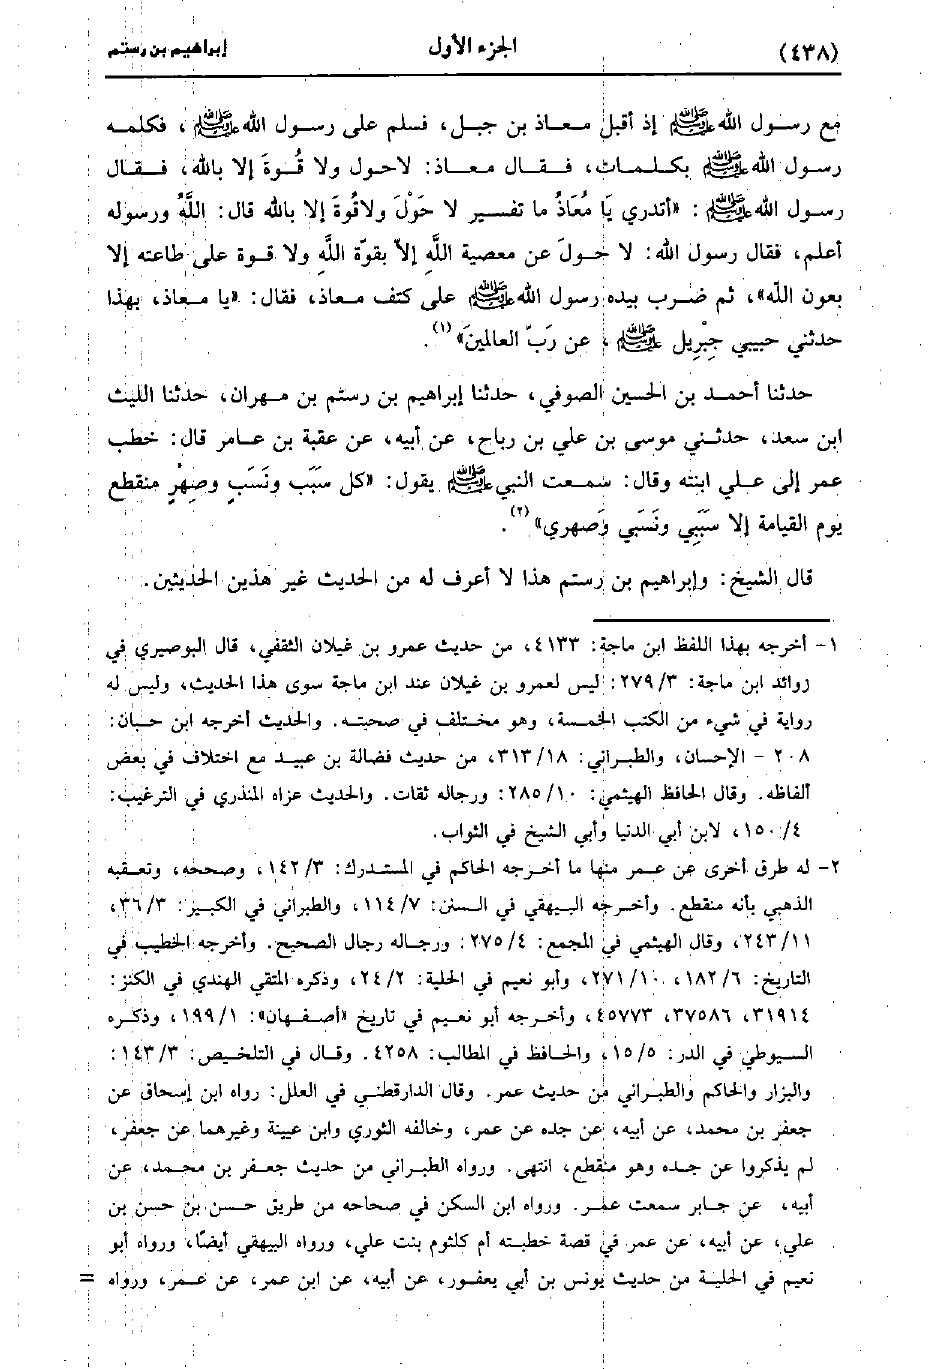 (٤٣٨) الجزء الأول إبراهيم بن رستم
مع رسول الله ﷺ إذ أقبل معـاذ بن جبـل، فسلم على رسـول الله ﷺ، فكلمـه
رسـول الله ﷺ بكلـمـات، فـقـال معـاذ: لاحول ولا قُـوةَ إلا بالله، فـقـال
رسـول الله ﷺ: «أتدري يَا مُعَاذُ ما تفسير لا حَوْلَ ولاقُوةَ إلا بالله قال: اللَّهُ ورسوله
أعلم، فقال رسول الله: لا حـولَ عن معصية اللَّهِ إلاَّ بقوّة اللَّهِ ولا قـوة على طاعته إلا
بعون اللّه»، ثم ضـرب بيده رسول الله ﷺ على كتف معـاذ، فقال: «يا معـاذ، بهذا
حدثني حبيبي جِبْرِيل ﷺ، عن رَبّ العالمينَ»(١).
حدثنا أحمـد بن الحسين الصوفي، حدثنا إبراهيم بن رستم بن مـهران، حدثنا الليث
ابن سعد، حدثـني موسى بن علي بن رباح، عن أبيه، عن عقبة بن عـامر قال: خطب
عمر إلى عـلـي ابنته وقال: سـمـعت النبي ﷺ يقول: «كل سَبَب ونَسَبٍ وصِهْرٍ منقطع
يوم القيامة إلا سَبَبِي ونَسَبَي وَصهري»(٢).
قال الشيخ: وإبراهيم بن رستم هذا لا أعرف له من الحديث غير هذين الحديثين.
١- أخرجه بهذا اللفظ ابن ماجة: ٤١٣٣، من حديث عمرو بن غيلان الثقفي، قال البوصيري في
زوائد ابن ماجة: ٢٧٩/٣: ليس لعمرو بن غيلان عند ابن ماجة سوى هذا الحديث، وليس له
رواية في شيء من الكتب الخمسة، وهو مختلف في صحبتـه. والحديث أخرجه ابن حبـان:
٢٠٨ - الإحسان، والطبـراني: ٣١٣/١٨، من حديث فضالة بن عبيـد مع اختلاف في بعض
ألفاظه. وقال الحافظ الهيثمي: ٢٨٥/١٠: ورجاله ثقات. والحديث عزاه المنذري في الترغيب:
١٥٠/٤، لابن أبي الدنيا وأبي الشيخ في الثواب.
٢- له طرق أخرى عن عمـر منها ما أخـرجه الحاكم في المستـدرك: ١٤٢/٣، وصححه، وتعـقبه
الذهبي بأنه منقطع. وأخـرجه البيـهقي في السنن: ١١٤/٧، والطبراني في الكبيـر: ٣٦/٣،
٢٤٣/١١، وقال الهيثمي في المجمع: ٢٧٥/٤: ورجـاله رجال الصحيح. وأخرجه الخطيب في
التاريخ: ١٨٢/٦، ٢٧١/١٠، وأبو نعيم في الحلية: ٢٤/٢، وذكره المتقي الهندي في الكنز:
٣١٩١٤، ٣٧٥٨٦، ٤٥٧٧٣، وأخـرجه أبو نعـيم في تاريخ «أصـفـهان»: ١٩٩/١، وذكـره
السيوطي في الدر: ١٥/٥، والحافظ في المطالب: ٤٢٥٨. وقال في التلخيص: ١٤٣/٣:
والبزار والحاكم والطبـراني من حديث عمر. وقال الدارقطنـي في العلل: رواه ابن إسحاق عن
جعفر بن محمد، عن أبيه، عن جده عن عمر، وخالفه الثوري وابن عيينة وغيرهما عن جعفر،
لم يذكروا عن جـده وهو منقطع، انتهى. ورواه الطبراني من حديث جعفـر بن محـمد، عن
أبيه، عن جـابر سمعت عمـر. ورواه ابن السكن في صحاحه من طريق حسـن بن حسن بن
علي، عن أبيه، عن عمر في قصة خطبته أم كلثوم بنت علي، ورواه البيهقي أيضًا، ورواه أبو
نعيم في الحليـة من حديث يونس بن أبي يعفـور، عن أبيه، عن ابن عمر، عن عـمر، ورواه =